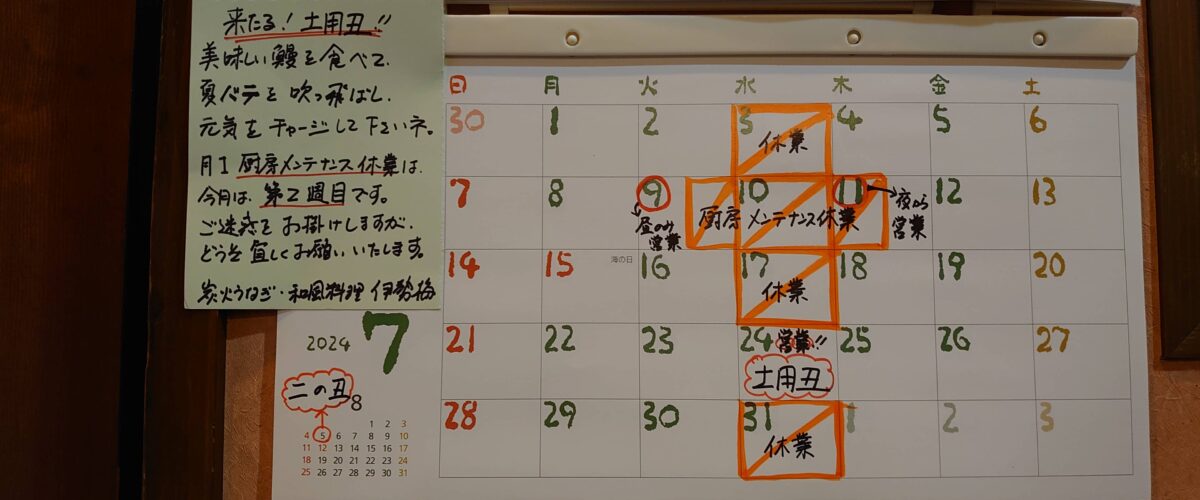 来たる！土用丑!!
美味しい鰻を食べて、
夏バテを吹っ飛ばし、
元気をチャージして下さいネ。
月1厨房メンテナンス休業は、
今月は、第2週目です。
ご迷惑をお掛けしますが、
どうぞ宜しくお願いいたします。
炭火うなぎ・和風料理 伊勢梅
日 月 火 水 木 金 土
30 1 2 3 4 5 6
休業
7 8 9 10 11 12 13
昼のみ
営業
厨房メンテナンス休業
夜から
営業
14 15 海の日 16 17 18 19 20
休業
21 22 23 24 営業!! 25 26 27
土用丑
28 29 30 31 1 2 3
休業
2024 7
二の丑
8
1 2 3
4 5 6 7 8 9 10
11 12 13 14 15 16 17
18 19 20 21 22 23 24
25 26 27 28 29 30 31